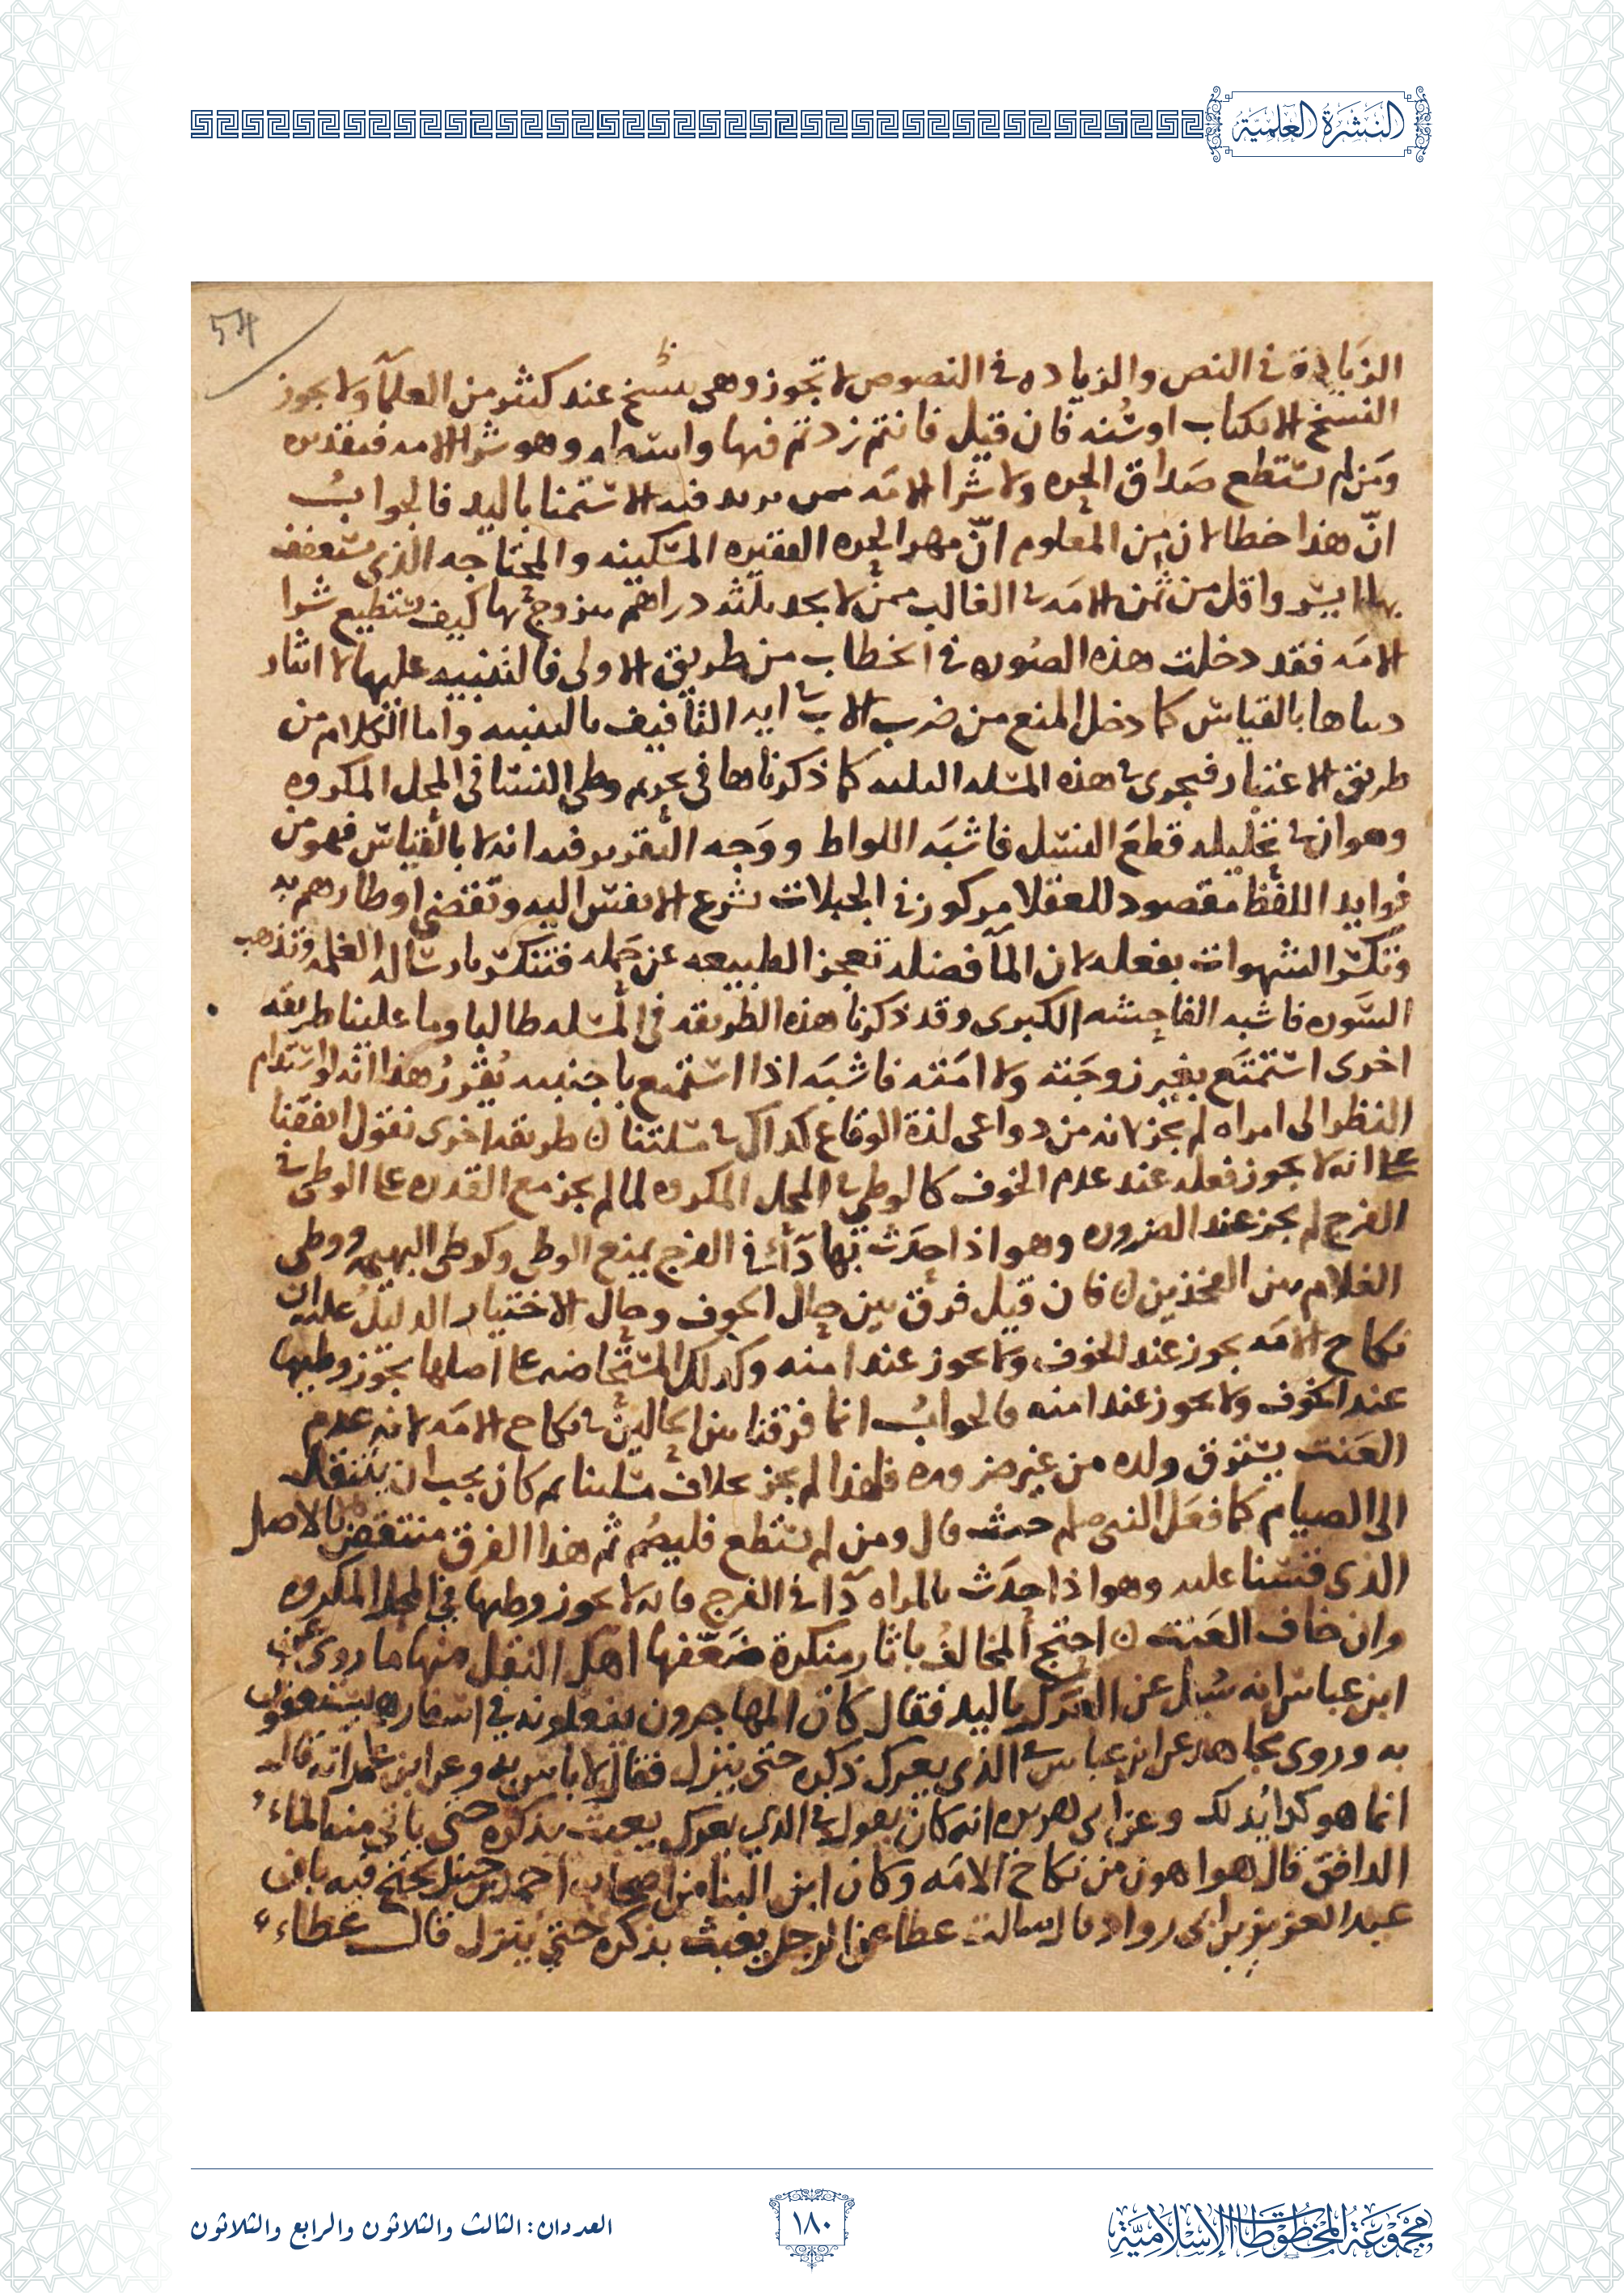 النشرة العلمية
54
الزيادة في النص والزياده في النصوص لا تجوز وهي نسخ عند كثير من العلمآ ولا يجوز
النسخ الا بكتاب او سنه فان قيل فانتم زدتم فيها واسه وهو شرا الامه فتقديره
ومن لم يستطع صداق الحره ولا شرا الامه فيه الاستمنا باليد فالجواب
ان هذا خطا لان من المعلوم ان مهر الحره الفقيره المسكينه والمحتاجه الذي يستعفف
بها ايسر واقل من ثمن الامه في الغالب فمن لا يجد ثلثه دراهم يتزوج بها كيف يستطيع شرا
الامه فقد دخلت هذه الصوره في الخطاب من طريق الاولى فالتنبيه عليها لا انا
بالقياس كما دخل المنع من ضرب الاب في ايه التافيف بالتنبيه واما الكلام من
طريق الاعتبار فيجري في هذه المسله كما ذكرناها في تحريم وطي النسا في المحل المكروه
وهو ان في تحليله قطع النسل فاشبه اللواط ووجه التقرير فيه انه لا بالقياس فهو من
فوايد اللفظ مقصود للعقلا مركوز في الجبلات تسرع الانفس اليه وتقضي اوطارهم به
وتكسر الشهوات بفعله لان المآ فضله تعجز الطبيعه عن حمله فتنكسر بارساله الغلمه وتذهب
السوره فاشبه الفاحشه الكبرى وقد ذكرنا هذه الطريقه في المسله طالبا وما علينا طريقه
اخرى استمتع بغير زوجته ولا امته فاشبه اذا استمتع باجنبيه يقرر هذا انه لو استدام
النظر الى امراه لم يجز لانه من دواعي لذة الوقاع كذلك في مسلتنا ن طريقه اخرى نقول اتفقنا
على انه لا يجوز فعله عند عدم الخوف كالوطي في المحل المكروه لما لم يجز مع القدره على الوطي في
الفرج لم يجز عند الضروره وهو اذا احدث بها دآ في الفرج يمنع الوطي وكوطي البهيمه ووطي
الغلام بين الفخذين ن فان قيل فرق بين حال الخوف وحال الاختيار الدليل عليه ان
نكاح الامه يجوز عند الخوف ولا يجوز عند امنه وكذلك المستحاضه على اصلها يجوز وطيها
عند الخوف ولا يجوز عند امنه فالجواب انما فرقنا بين الحالين في نكاح الامه لانه عدم
العنت يسترق ولده من غير ضروره فلهذا لم يجز بخلاف مسلتنا ثم كان يجب ان ينتقل
الى الصيام كما فعل النبي صلم حيث قال ومن لم يستطع فليصم ثم هذا الفرق منتقض بالاصل
الذي قسنا عليه وهو اذا حدث بالمراه دآ في الفرج فانه لا يجوز وطيها في المحل المكروه
وان خاف العنت ن احتج المخالف باثار منكرة ضعفها اهل النقل منها ما روي عن
ابن عباس انه سيل عن العرك باليد فقال كان المهاجرون يفعلونه في اسفارهم يستعفون
به وروى مجاهد عن ابن عباس في الذي يعرك ذكره حتى ينزل فقال لا باس به وعن ابن عمر انه قال
انما هو كذا يدلك وعن ابي هريره انه كان يقول في الذي يعرك يعبث بذكره حتى ياتي منه الماء
الدافق قال هو اهون من نكاح الامه وكان ابن البنا من اصحاب احمد بن حنبل يحتج فيه بان
عبد العزيز بن ابي رواد قال سالت عطا عن الرجل يعبث بذكره حتى ينزل قال عطاء
مجموعة المخطوطات الإسلامية
١٨٠
العددان: الثالث والثلاثون والرابع والثلاثون